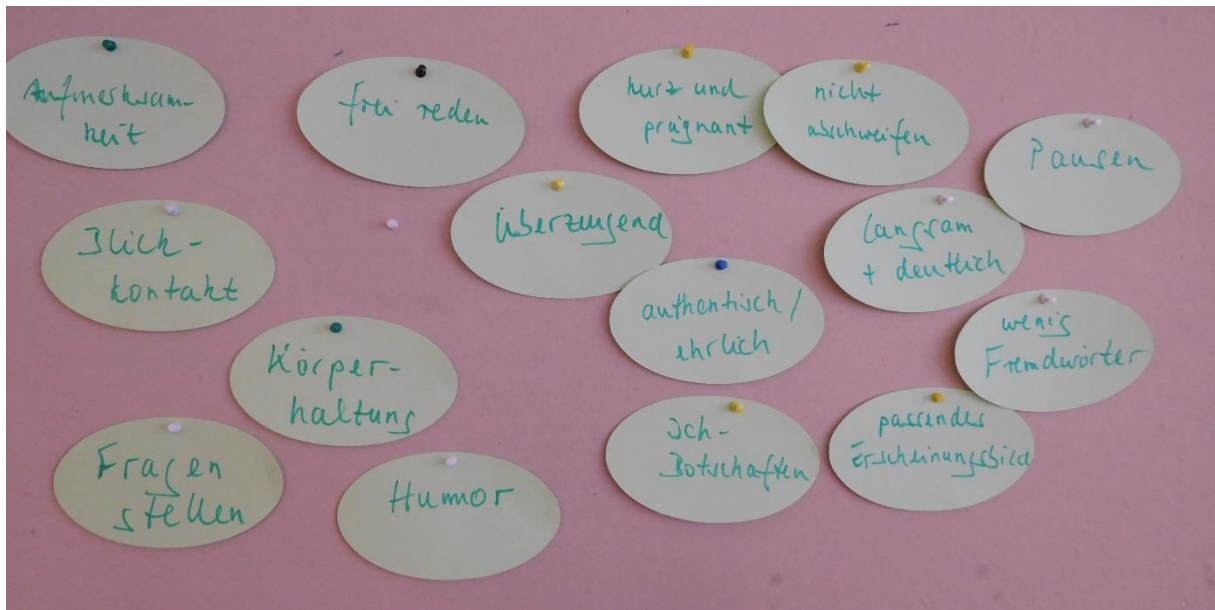 Aufmerksam-
keit
frei reden
kurz und
prägnant
nicht
abschweifen
Pausen
Blick-
kontakt
überzeugend
langsam
+ deutlich
authentisch /
ehrlich
wenig
Fremdwörter
Körper-
haltung
Ich-
Botschaften
passendes
Erscheinungsbild
Fragen
stellen
Humor